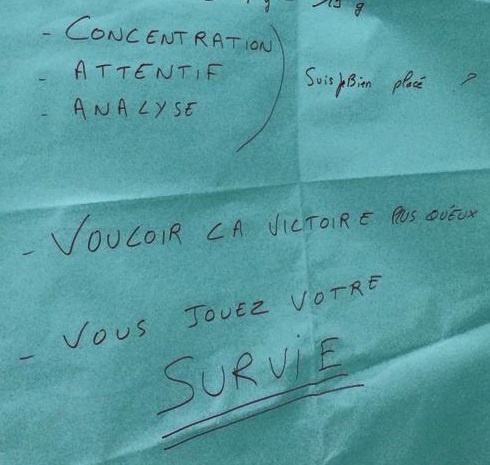 - CONCENTRATION
- ATTENTIF
- ANALYSE
Suis je Bien placé ?
- VOULOIR LA VICTOIRE PLUS QU'EUX
- VOUS JOUEZ VOTRE
SURVIE